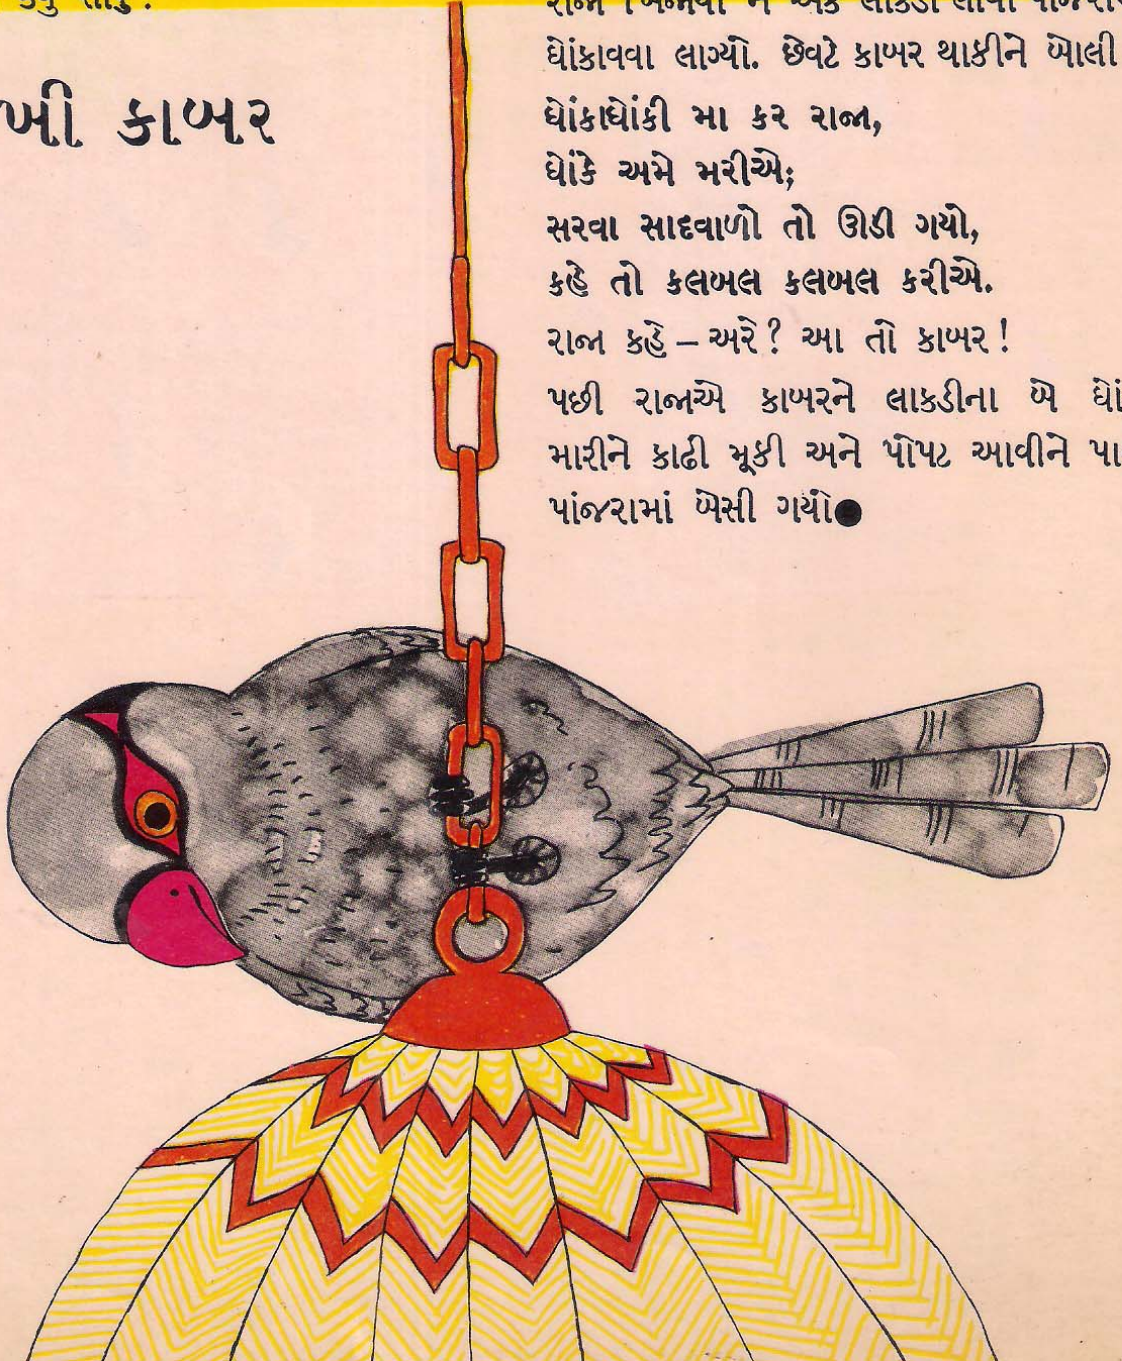 ખી કાબર
ઘોંકાવવા લાગ્યો. છેવટે કાબર થાકીને બોલી
ઘોંકાઘોંકી મા કર રાજા,
ઘોંકે અમે મરીએ;
સરવા સાદવાળો તો ઊડી ગયો,
કહે તો કલબલ કલબલ કરીએ.
રાજા કહે – અરે? આ તો કાબર!
પછી રાજાએ કાબરને લાકડીના બે ઘોં
મારીને કાઢી મૂકી અને પોપટ આવીને પા
પાંજરામાં બેસી ગયો●